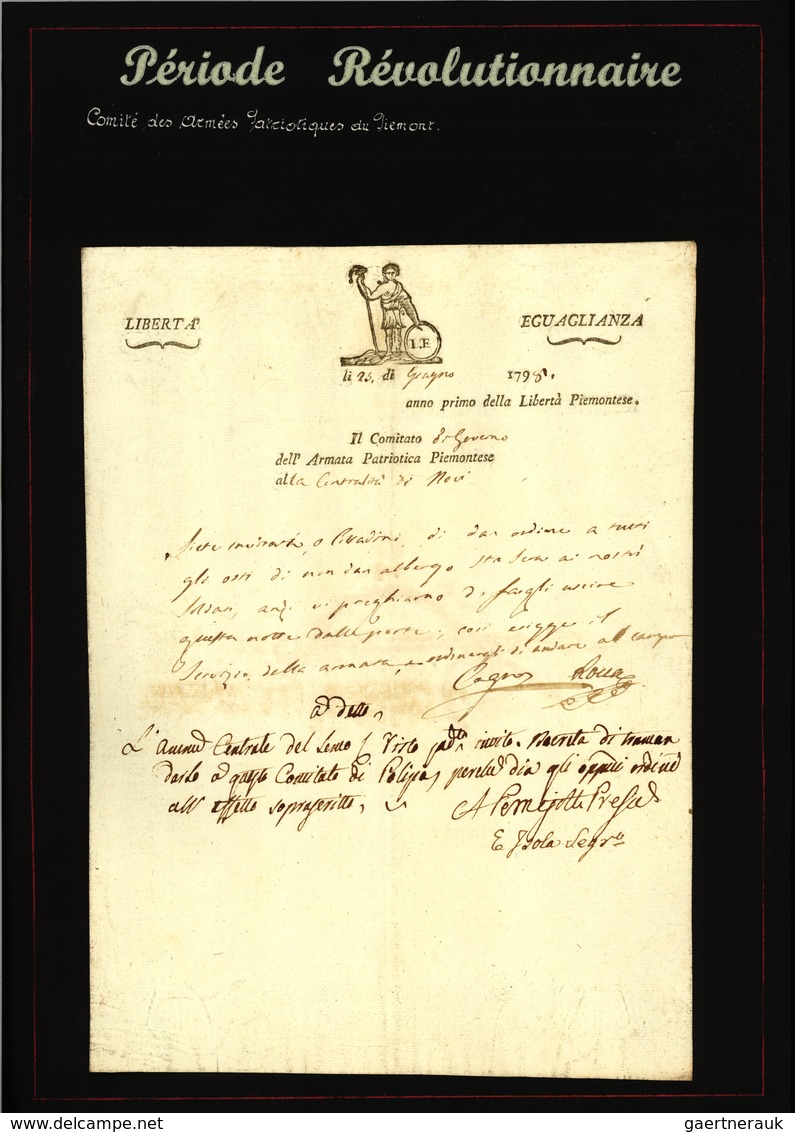 Période Révolutionnaire
Comité des Armées Patriotiques du Piemont.
LIBERTA' EGUAGLIANZA
L.E
li 25. di Giugno 1798.
anno primo della Libertà Piemontese.
Il Comitato di Governo
dell' Armata Patriotica Piemontese
alla Centralità di Novi
Siete invitati, o Cittadini, di dar ordine a tutti
gli osti di non dar albergo sta sera ai nostri
Soldati, anzi vi preghiamo di fargli uscire
questa notte dalle porte, così esigge il
Servizio della armata, e ordinargli di andare al campo
ad detto
L' Centrale del Lemo Visto invito. Decreta di traman
darlo a questo Comitato di Polizia, perche dia gli oppni ordini
all' effetto soprascritto.
Presid
E Isola Segr.o
delcampe.net gaertnerauk